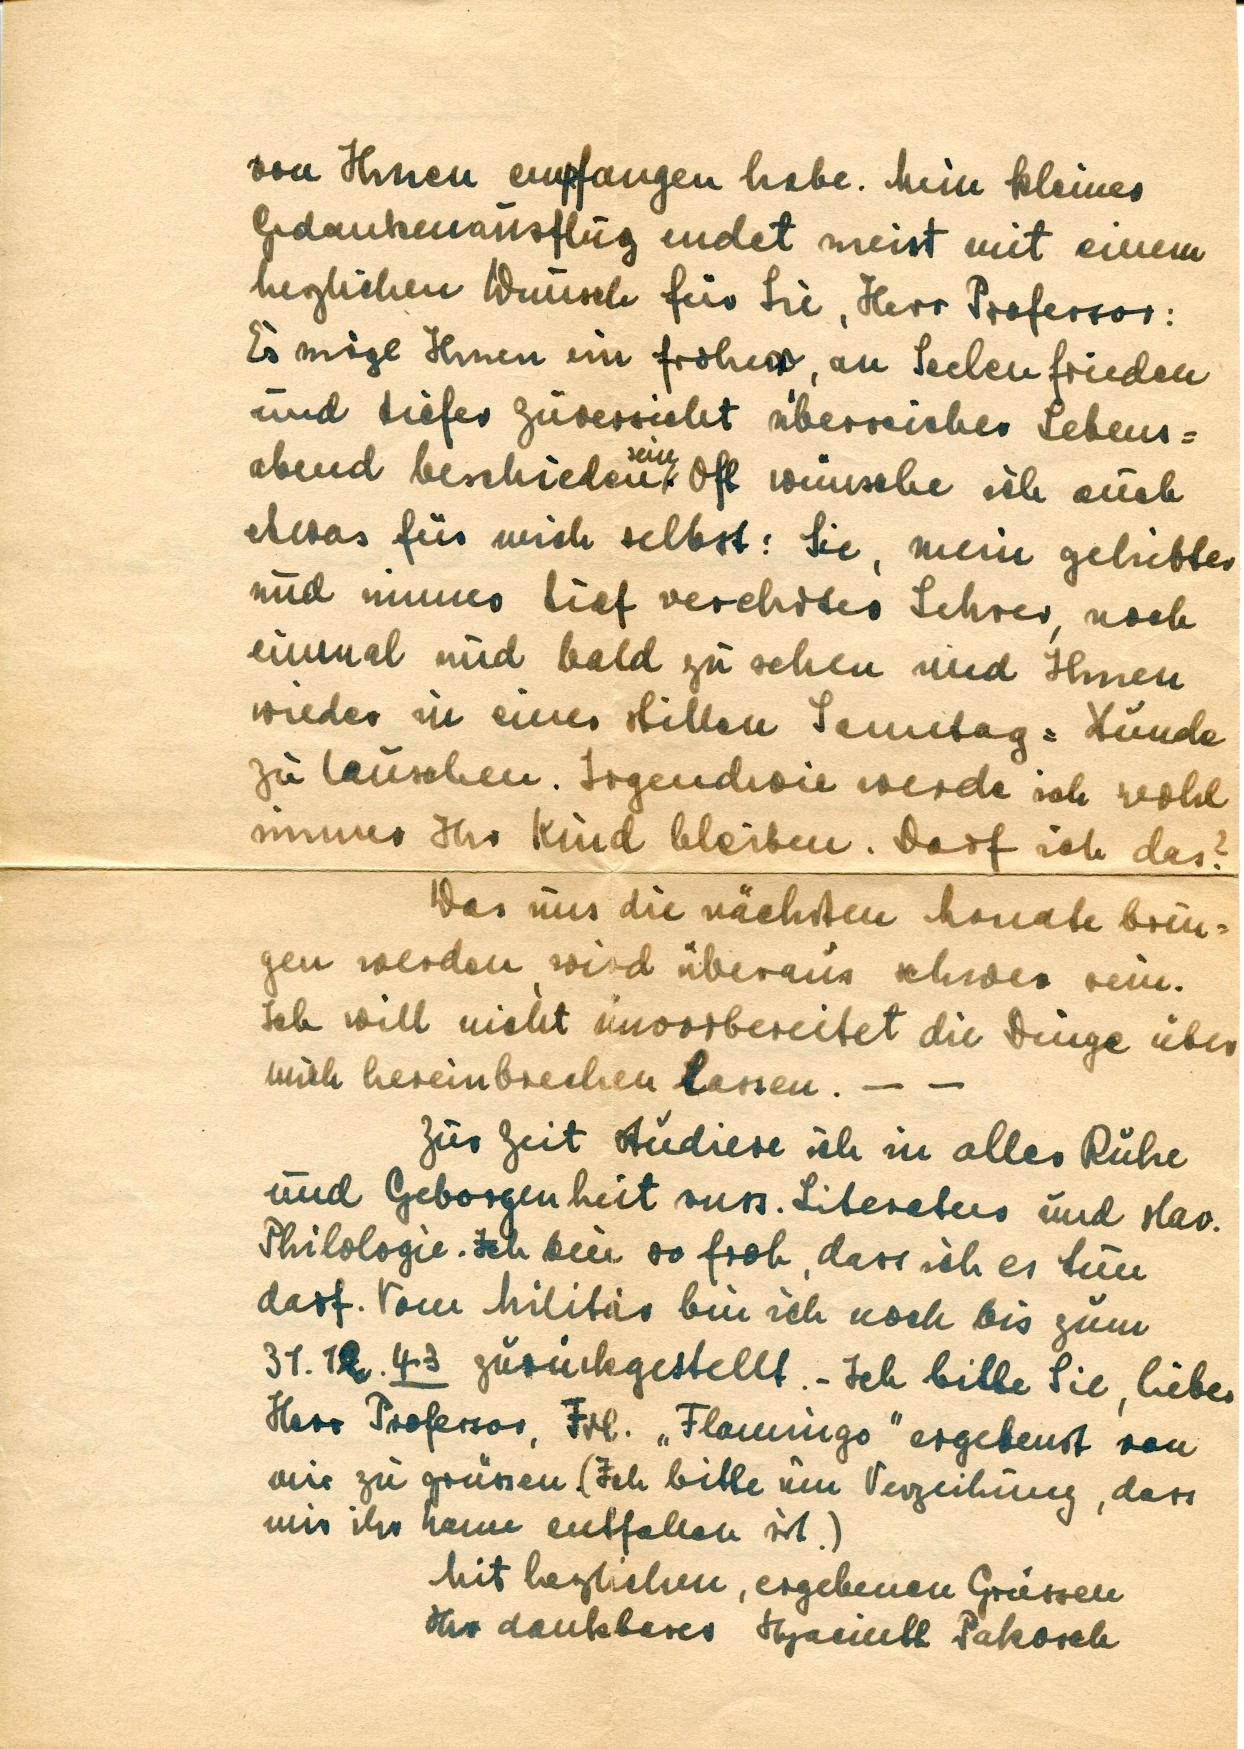 von Ihnen empfangen habe. Mein kleiner
Gedankenausflug endet meist mit einem
herzlichen Wunsch für Sie, Herr Professor:
Es möge Ihnen ein froher, an Seelenfrieden
und tiefer Zuversicht überreicher Lebens=
abend beschieden sein. Oft wünsche ich auch
etwas für mich selbst: Sie, mein geliebter
und immer tief verehrter Lehrer, noch
einmal und bald zu sehen und Ihnen
wieder in einer stillen Sonntag=Stunde
zu lauschen. Irgendwie werde ich wohl
immer Ihr Kind bleiben. Darf ich das?
Was uns die nächsten Monate brin=
gen werden, wird überaus schwer sein.
Ich will nicht unvorbereitet die Dinge über
mich hereinbrechen lassen. — —
Zur Zeit studiere ich in aller Ruhe
und Geborgenheit russ. Literatur und slav.
Philologie. Ich bin so froh, dass ich es tun
darf. Vom Militär bin ich noch bis zum
31.12.43 zurückgestellt. - Ich bitte Sie, lieber
Herr Professor, Frl. „Flamingo" ergebenst von
mir zu grüssen. (Ich bitte um Verzeihung, dass
mir ihr Name entfallen ist.)
Mit herzlichen, ergebenen Grüssen
Ihr dankbarer Hyacinth Pakosch